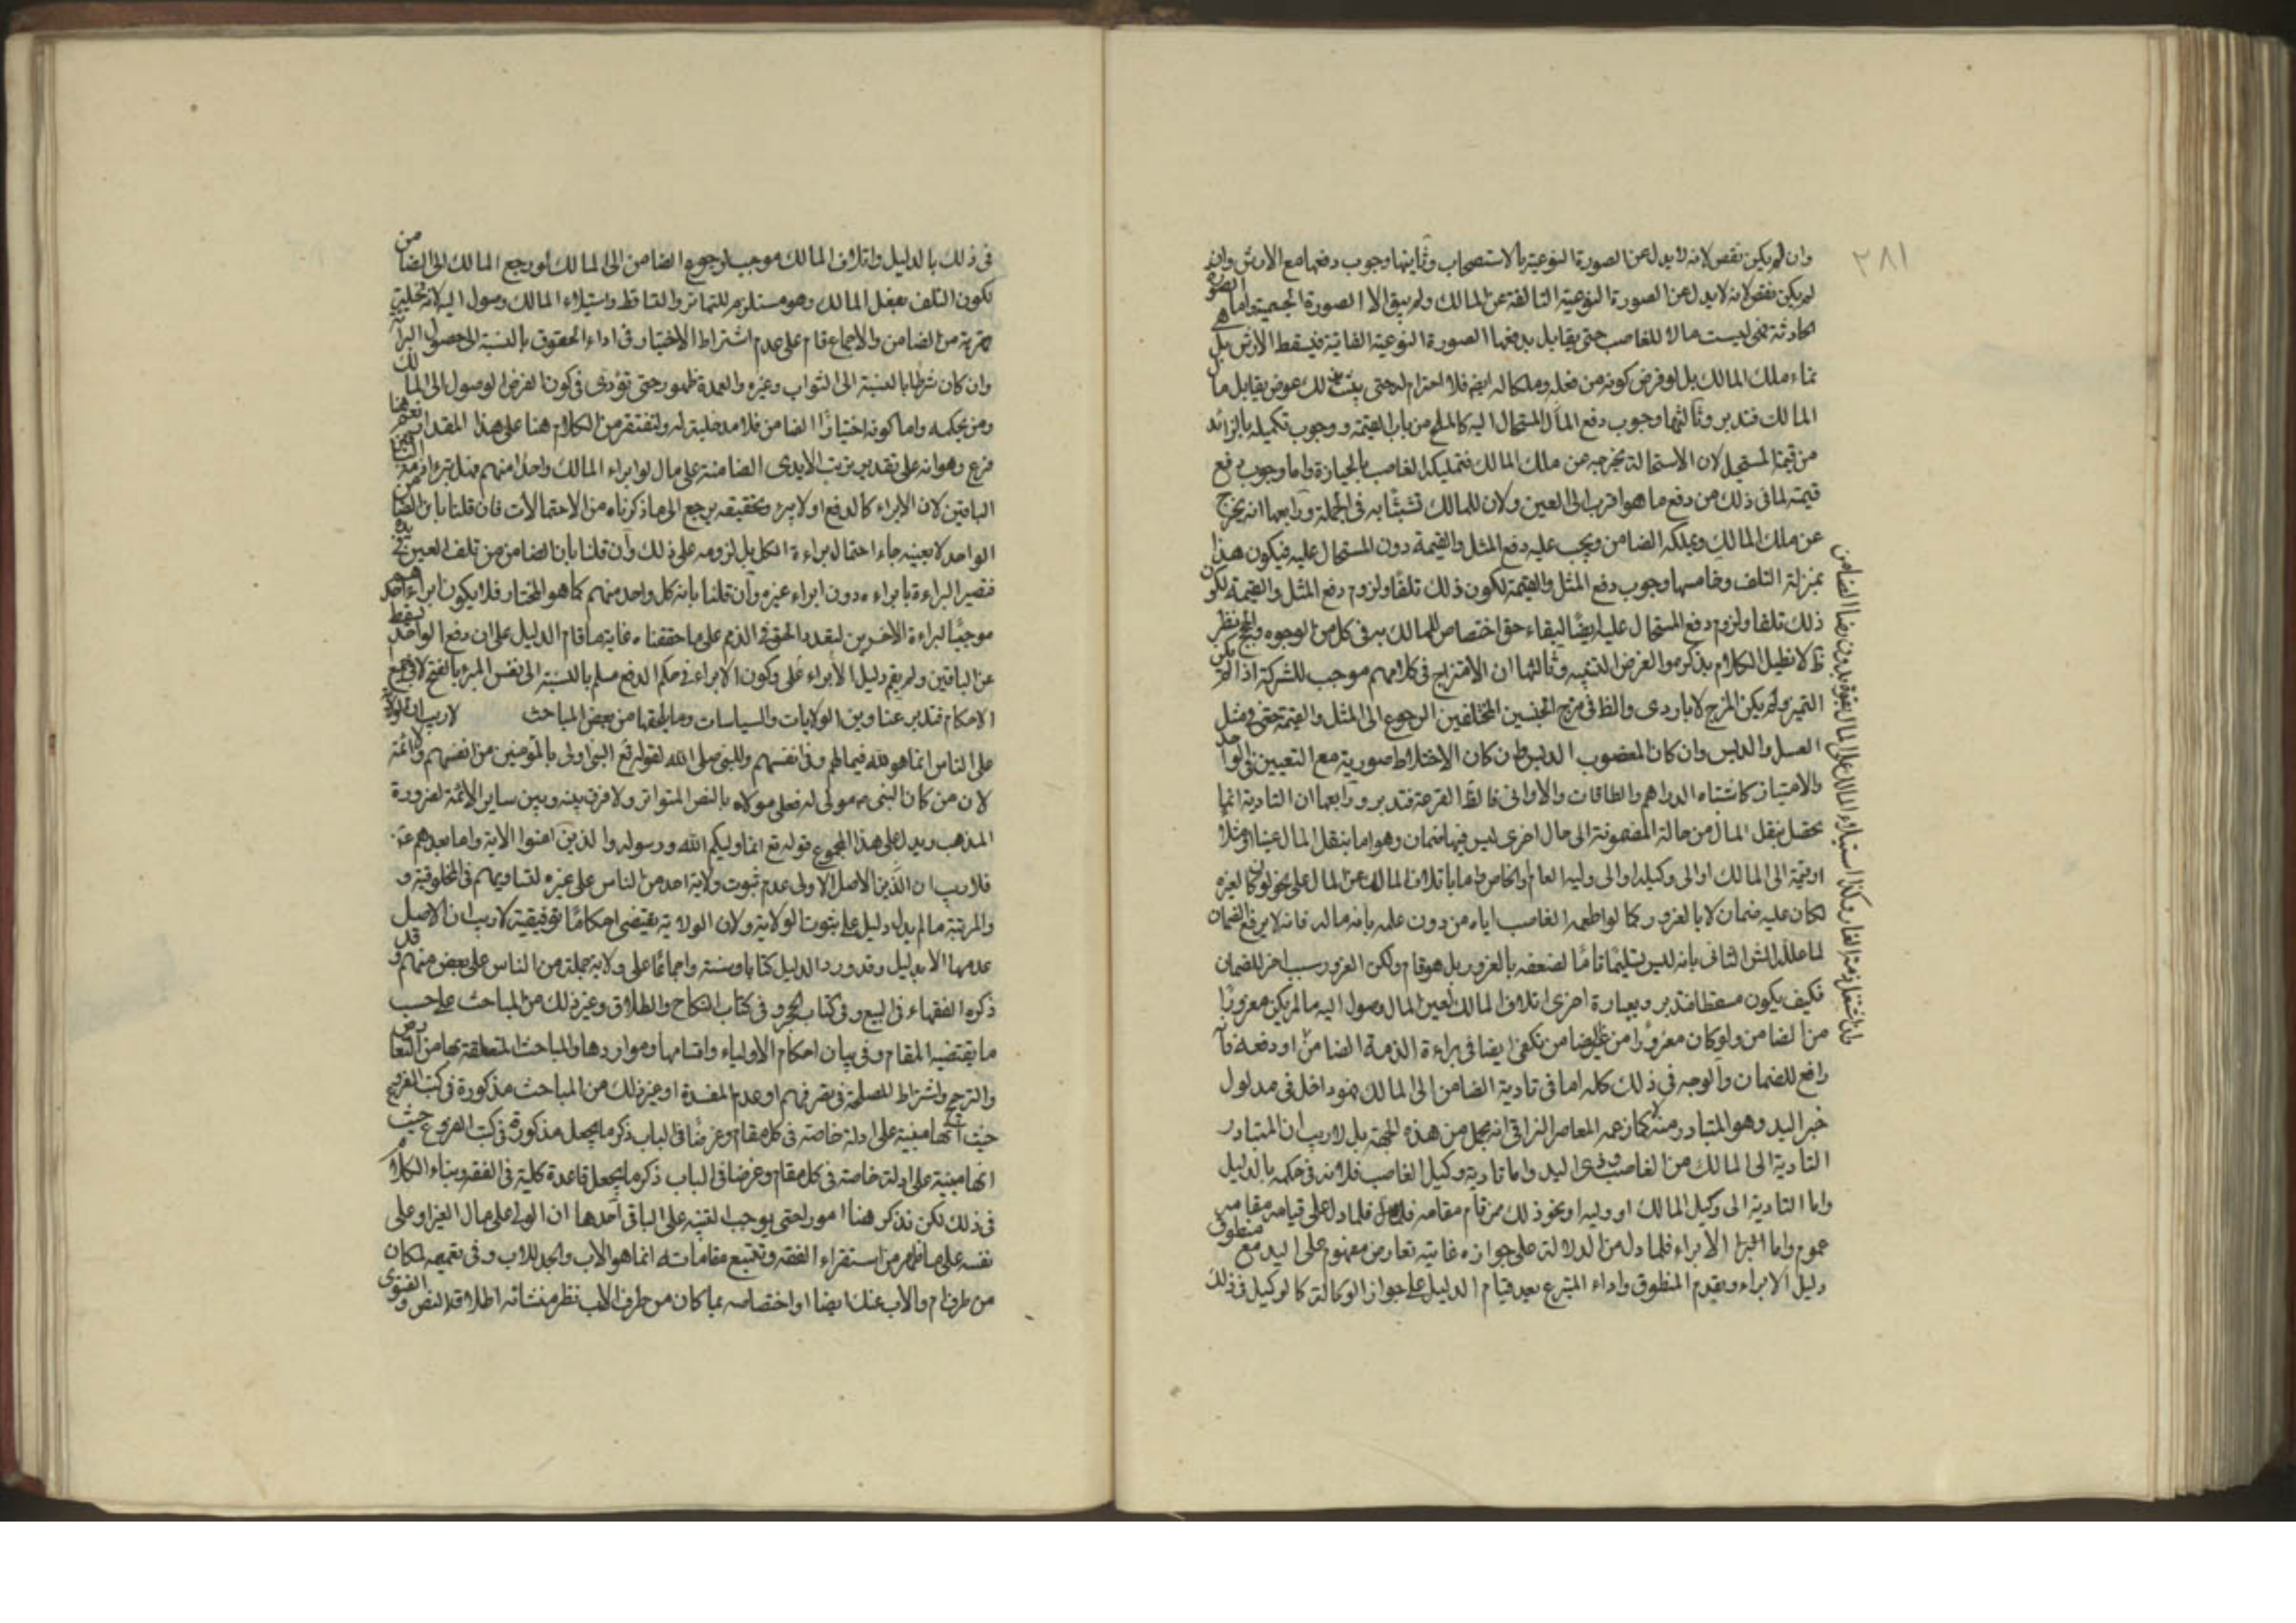 ٢٨١
وان لم يكن نقص لانه لا بدل عن الصورة النوعية بالاستصحاب وثانيها وجوب دفعها مع الارش وان
لم يكن نقص لانه لا بدل عن الصورة النوعية التالفة عن المالك ولم يبق الا الصورة الجسمية واما الصورة
الحادثة فهي ليست مالا للغاصب حتى يقابل بدفعها الصورة النوعية الفانية فيسقط الارش بل هي
نماء ملك المالك بل لو فرض كونه من فعله وملكا له ايض فلا احترام له حتى يثبت لك عوض يقابل مال
المالك فتدبر وثالثها وجوب دفع المال المستحال اليه كالملح من باب القيمة ووجوب تكميله بالزائد
من قيمة المستحيل لان الاستحالة تخرجه عن ملك المالك فتمليكه الغاصب بالحيازة واما وجوب دفع
قيمته لما في ذلك من دفع ما هو اقرب الى العين ولان للمالك تشبثا به في الجملة ورابعها انه يخرج
عن ملك المالك ويملكه الضامن ويجب عليه دفع المثل والقيمة دون المستحال عليه فيكون هذا
بمنزلة التلف وخامسها وجوب دفع المثل والقيمة لكون ذلك تلفا ولزوم دفع المثل والقيمة لكون
ذلك تلفا ولزوم دفع المستحال عليه ايضا لبقاء حق اختصاص للمالك به في كل من الوجوه والحجج نظر
ظ لا نطيل الكلام بذكرها والغرض التنبيه وثالثها ان الامتزاج في كلامهم موجب للشركة اذا لم يكن
التميز ولم يكن المزج لا باردى والظ في مزج الجنسين المختلفين الرجوع الى المثل والقيمة حتى في مثل
العسل والدبس وان كان المغصوب الدبس وان كان الاختلاط صورية مع التعيين في الواحد
والامتياز كاشتباه الدراهم والطاقات والاواني فالظ القرعة فتدبر ورابعها ان التادية انما
تحصل بنقل المال من حالة المضمونة الى حال اخرى ليس فيها ضمان وهو اما بنقل المال عينا او مثلا
او قيمة الى المالك او الى وكيله او الى وليه العام والخاص واما باتلاف المالك عن المال على نحو لو كان لغيره
لكان عليه ضمان لا بالغرور كما لو اطعمه الغاصب اياه من دون علمه بانه ماله فانه لا يرفع الضمان
لما علله الش الثاني بانه ليس تسليما تاما لضعفه بالغرور بل هو قام ولكن الغرور سبب اخر للضمان
فكيف يكون مسقطا فتدبر وبعبارة اخرى اتلاف المالك لعين المال وصول اليه ما لم يكن مغرورا
من الضامن ولو كان مغرورا من غير ضامن تكفى ايضا في براءة الذمة الضامن او دفعه فانه
رافع للضمان والوجه في ذلك كله اما في تادية الضامن الى المالك فهو داخل في مدلول
خبر اليد وهو المتبادر منه لا كما زعمه المعاصر النراقي انه مجمل من هذه الجهة بل لا ريب ان المتبادر
التادية الى المالك من الغاصب وذى اليد واما تادية وكيل الغاصب فلانه في حكمه بالدليل
واما التادية الى وكيل المالك او وليه او نحو ذلك ممن قام مقامه فلما دل على قيامه مقامه
عموم واما الابراء فلما دل من الدلالة على جوازه غايته تعارض مفهوم على اليد مع منطوق
دليل الابراء ويقدم المنطوق واداء المتبرع بعد قيام الدليل على جواز الوكالة كالوكيل في ذلك
في ذلك بالدليل واتلاف المالك موجب لرجوع الضامن الى المالك لو رجع المالك الى الضامن
لكون التلف بفعل المالك وهو مستلزم للتهاتر والتساقط واستيلاء المالك وصول اليه لانه تخلية
قهرية من الضامن والاجماع قام على عدم اشتراط الاختيار في اداء الحقوق بالنسبة الى حصول البراءة
وان كان شرطا بالنسبة الى الثواب وغيره والعمدة ظهور حتى تؤدى في كون الغرض الوصول الى المالك
ومن بحكمه واما كونه اختيارا الضامن فلا مدخلية له ولنقتصر من الكلام هنا على هذا المقدار نعم هنا
فرع وهو انه على تقدير ترتب الايدى الضامنة على مال لو ابراء المالك واحدا منهم فهل تبرء ذمة
الباقين لان الابراء كالدفع او لا يبرء وتحقيقه يرجع الى ما ذكرناه من الاحتمالات فان قلنا بان الضامن
الواحد لا بعينه جاء احتمال براءة الكل بل لزومه على ذلك وان قلنا بان الضامن من تلف العين في يده
فتصير البراءة بابراءه دون ابراء غيره وان قلنا بانه كل واحد منهم كما هو المختار فلا يكون ابراء احدهم
موجبا لبراءة الاخرين لتعدد الحق في الذمم على ما حققناه غاية ما قام الدليل على ان دفع الواحد يسقط
عن الباقين ولم يقم دليل الابراء على وكون الابراء في حكم الدفع مسلم بالنسبة الى نفس المبرء بالفتح لا في جميع
الاحكام فتدبر عناوين الولايات والسياسات وما يلحقها من بعض المباحث لا ريب ان الولاية
على الناس انما هو لله فيما لهم وفي انفسهم وللنبي صلى الله لقوله تع النبي اولى بالمؤمنين من انفسهم وللائمة
لان من كان النبي ص مولى له فعلي مولاه بالنص المتواتر ولا فرق بينه وبين ساير الائمة لضرورة
المذهب ويدل على هذا المجموع قوله تع انما وليكم الله ورسوله والذين امنوا الاية واما بعدهم ع
فلا ريب ان الاصل الاولى عدم ثبوت ولاية احد من الناس على غيره لتساويهم في المخلوقية و
والمرتبة ما لم يدل دليل على ثبوت الولاية ولان الولاية يقتضى احكاما توقيفية لا ريب ان الاصل
عدمها الا بدليل وقد ورد الدليل كتابا وسنة واجماعا على ولاية جملة من الناس على بعض منهم وقد
ذكره الفقهاء في البيع وفي كتاب الحجر وفي كتاب النكاح والطلاق وغير ذلك من المباحث على حسب
ما يقتضيه المقام وفي بيان احكام الاولياء واقسامها ومواردها والمباحث المتعلقة بها من التعارض
والترجيح واشتراط المصلحة في تصرفهم او عدم المفسدة او غير ذلك من المباحث مذكورة في كتب الفروع
حيث انها مبنية على ادلة خاصة في كل مقام وغرضنا في الباب ذكر ما يجعل مذكورة في كتب الفروع حيث
انها مبنية على ادلة خاصة في كل مقام وغرضنا في الباب ذكر ما يجعل قاعدة كلية في الفقه وبناء الكلام
في ذلك لكن نذكر هنا امورا حتى يوجب التنبه على الباقي احدها ان الولي على مال الغير او على
نفسه على ما ظهر من استقراء الفقه وتتبع مقاماته انما هو الاب والجد للاب وفي تعميمه لمكان
من طرف ام والاب عنك ايضا او اختصاصه بما كان من طرف الاب نظر منشائه اطلاق النص والفتوى